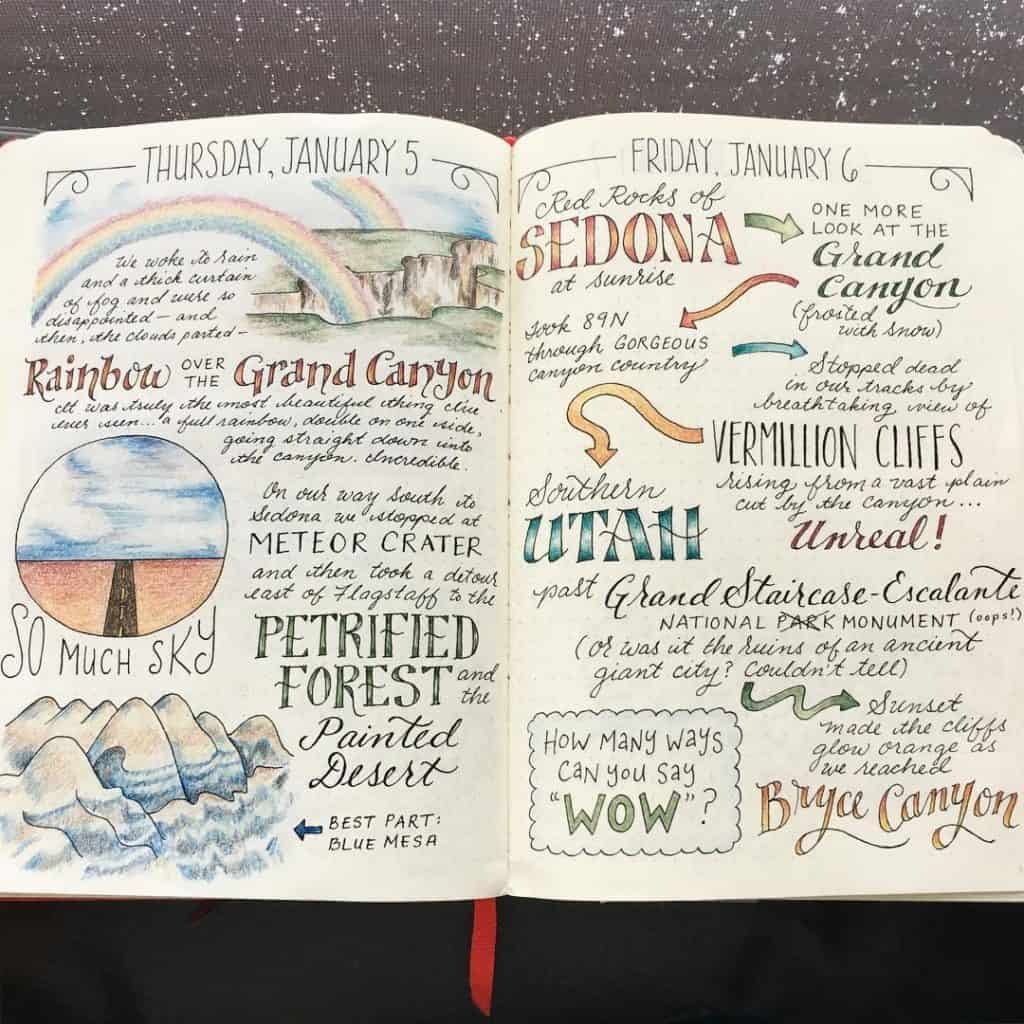 THURSDAY, JANUARY 5
We woke to rain
and a thick curtain
of fog and were so
disappointed — and
then, the clouds parted —
Rainbow OVER THE Grand Canyon
It was truly the most beautiful thing I've
ever seen... a full rainbow, double on one side,
going straight down into
the canyon. Incredible.
On our way south to
Sedona we stopped at
METEOR CRATER
and then took a detour
east of Flagstaff to the
PETRIFIED
FOREST and the
Painted
Desert
SO MUCH SKY
BEST PART:
BLUE MESA
FRIDAY, JANUARY 6
Red Rocks of
SEDONA
at sunrise
ONE MORE
LOOK AT THE
Grand
Canyon
(frosted
with snow)
Took 89N
through GORGEOUS
canyon country
Stopped dead
in our tracks by
breathtaking view of
VERMILLION CLIFFS
rising from a vast plain
cut by the canyon...
Unreal!
Southern
UTAH
past Grand Staircase-Escalante
NATIONAL PARK MONUMENT (oops!)
(or was it the ruins of an ancient
giant city? Couldn't tell)
Sunset
made the cliffs
glow orange as
we reached
Bryce Canyon
HOW MANY WAYS
CAN YOU SAY
"WOW"?